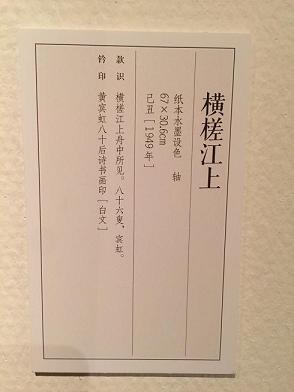 横槎江上
纸本水墨设色 轴
67×30.6cm
己丑［1949年］
款识 横槎江上舟中所见。八十六叟，宾虹。
钤印 黄宾虹八十后诗书画印［白文］